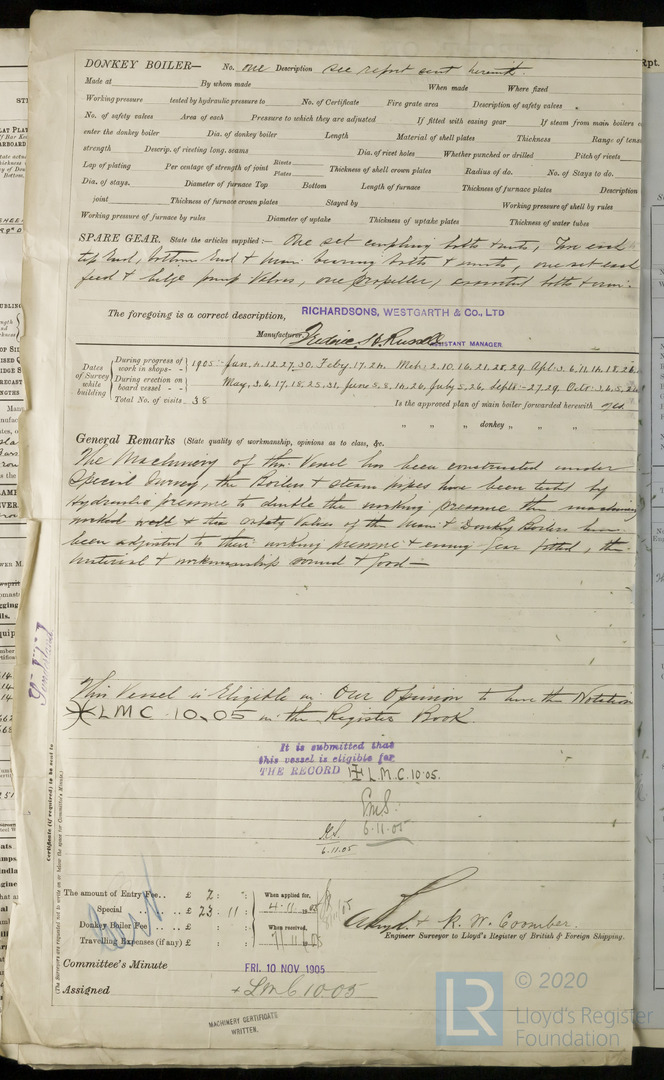 DONKEY BOILER— No. one Description see report sent herewith.
Made at By whom made When made Where fixed
Working pressure tested by hydraulic pressure to No. of Certificate Fire grate area Description of safety valves
No. of safety valves Area of each Pressure to which they are adjusted If fitted with easing gear If steam from main boilers c
enter the donkey boiler Dia. of donkey boiler Length Material of shell plates Thickness Range of tens
strength Descrip. of riveting long. seams Dia. of rivet holes Whether punched or drilled Pitch of rivets
Lap of plating Per centage of strength of joint Rivets Plates Thickness of shell crown plates Radius of do. No. of Stays to do.
Dia. of stays. Diameter of furnace Top Bottom Length of furnace Thickness of furnace plates Description
joint Thickness of furnace crown plates Stayed by Working pressure of shell by rules
Working pressure of furnace by rules Diameter of uptake Thickness of uptake plates Thickness of water tubes
SPARE GEAR. State the articles supplied:— One set coupling bolts & nuts, Two each
top end, bottom End & Main bearing bolts & nuts, one set each
feed & bilge pump Valves, one propeller, assorted bolts & iron.
The foregoing is a correct description,
RICHARDSONS, WESTGARTH & Co., LTD
Manufacturer.
ASSISTANT MANAGER.
Dates of Survey while building
During progress of work in shops- - 1905:- Jan. 4. 12. 27. 30. Feby. 17. 24. Mch: 2. 10. 16. 21. 28. 29. Apl: 3. 6. 11. 14. 18. 26.
During erection on board vessel - - May. 3. 6. 17. 18. 25. 31. June 5. 8. 14. 26. July 5. 26. Sept:- 27. 29. Oct: 3. 6.
Total No. of visits 38 Is the approved plan of main boiler forwarded herewith yes
" " " donkey " " "
General Remarks (State quality of workmanship, opinions as to class, &c.
The Machinery of this Vessel has been constructed under
Special Survey, the Boilers & steam pipes have been tested by
Hydraulic pressure to double the working pressure the machinery
worked well & the safety Valves of the Main & Donkey Boilers have
been adjusted to their working pressure & easing gear fitted, the
material & workmanship sound & good—
Sunderland
This Vessel is Eligible in Our Opinion to have the Notation
LMC 10.05 in the Register Book
It is submitted that
this vessel is eligible for
THE RECORD L.M.C. 10.05.
6.11.05
6.11.05
Certificate (if required) to be sent to
(The Surveyors are requested not to write on or below the space for Committee's Minute.)
The amount of Entry Fee . . £ 2 : : When applied for,
Special . . . . £ 23 . 11 : 4.11.1905
Donkey Boiler Fee . . . £ : : When received,
Travelling Expenses (if any) £ : : 7.11.1905
& R. W. Coomber.
Engineer Surveyor to Lloyd's Register of British & Foreign Shipping.
Committee's Minute FRI. 10 NOV 1905
Assigned + LMC 10.05
MACHINERY CERTIFICATE
WRITTEN.
LR
© 2020
Lloyd's Register
Foundation